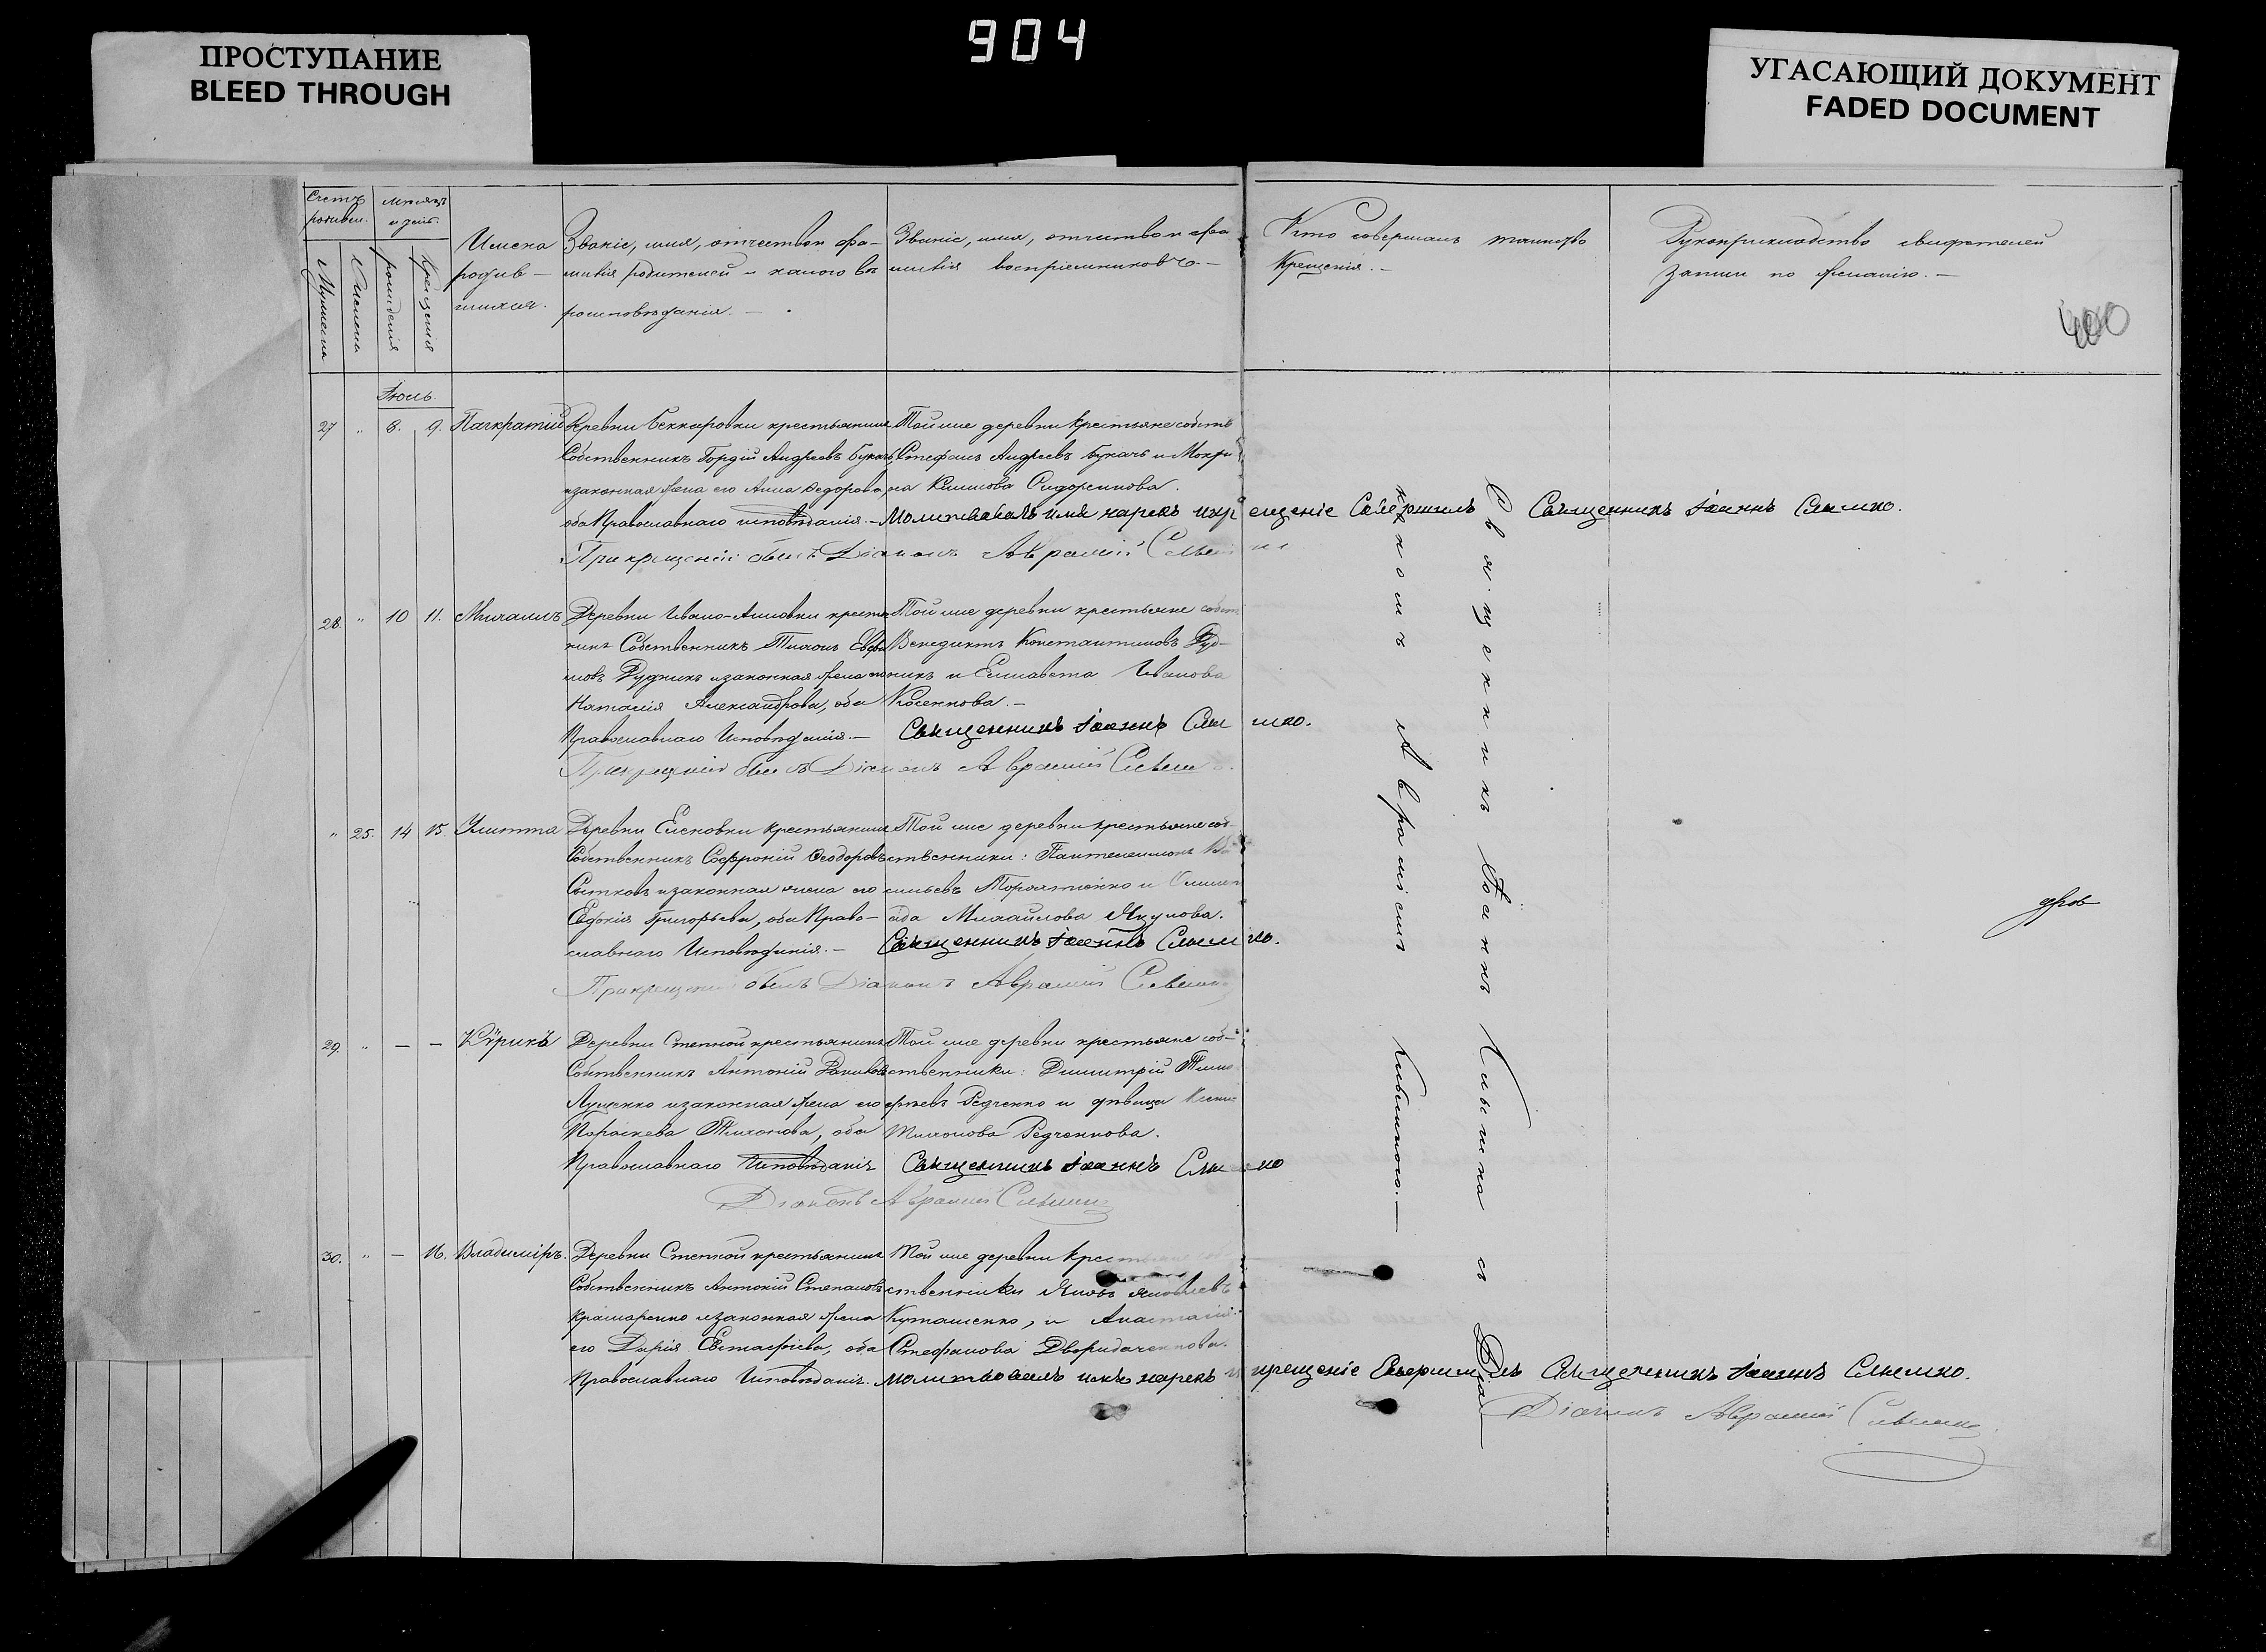 904
ПРОСТУПАНИЕ
BLEED THROUGH
УГАСАЮЩИЙ ДОКУМЕНТ
FADED DOCUMENT
Счетъ родивш.
Мѣсяцъ и день.
Мужеска
Женска
рожденія
Крещенія
Имена родив-
шихся.
Званіе, имя, отчество и фа-
милія родителей и какого вѣ
роисповѣданія. —
Званіе, имя, отчество и фа
милія воспріемниковъ. —
Кто совершалъ таинство
Крещенія. —
Рукоприкладство свидѣтелей
записи по желанію. —
400
Іюль.
27 " 8. 9. Панкратій
Деревни Беккаровки крестьянинъ
Собственникъ Гордій Андреевъ Букачъ
и законная жена его Анна Федорова,
оба Православнаго исповѣданія. —
Той же деревни крестьяне собств
Стефанъ Андреевъ Букачъ и Мокри
на Климова Сидоренкова.
Молитвовалъ имя нарекъ и крещеніе Совершилъ Священникъ Іоаннъ Слѣшко.
При крещеніи былъ Діаконъ Аврамій
28. " 10 11. Михаилъ
Деревни Ивано-Анновки крестья
нинъ Собственникъ Тихонъ Евфи
мовъ Рудникъ и законная жена его
Наталія Александрова, оба
Православнаго Исповѣданія. —
Той же деревни крестьяне собств
Венедиктъ Константиновъ Руд-
никъ и Елисавета Иванова
Косенкова. —
Священникъ Іоаннъ
При крещеніи былъ Діаконъ Аврамій
" 25. 14 15. Улитта
Деревни Еленовки крестьянинъ
Собственникъ Софроній Феодоровъ
Сытковъ и законная жена его
Евдокія Григорьева, оба Право-
славнаго Исповѣданія. —
Той же деревни крестьяне соб-
ственники: Пантелеимонъ Ва
сильевъ и Олимпі
ада Михайлова Якулова.
Священникъ Іоаннъ
При крещеніи былъ Діаконъ Аврамій
29. " — — Кѵрикъ
Деревни Степной крестьянинъ
Собственникъ Антоній
Луценко и законная жена его
Параскева Тихонова, оба
Православнаго Исповѣданія
Той же деревни крестьяне соб-
ственники: Димитрій Тимо
феевъ Редченко и дѣвица Ксенія
Тихонова Редченкова.
Священникъ Іоаннъ
Діаконъ Аврамій
30. " — 16. Владиміръ.
Деревни Степной крестьянинъ
Собственникъ Антоній Степановъ
Крамаренко и законная жена
его Дарія Евстафіева, оба
Православнаго Исповѣданія.
Той же деревни крестьяне
ственники Яковъ Яковлевъ
и Анастасія
Стефанова
Молитвовалъ имя нарекъ и крещеніе Совершилъ Священникъ Іоаннъ Слѣшко.
Діаконъ Аврамій
Священникъ Іоаннъ Слѣшко съ Діа-
кономъ Авраміемъ